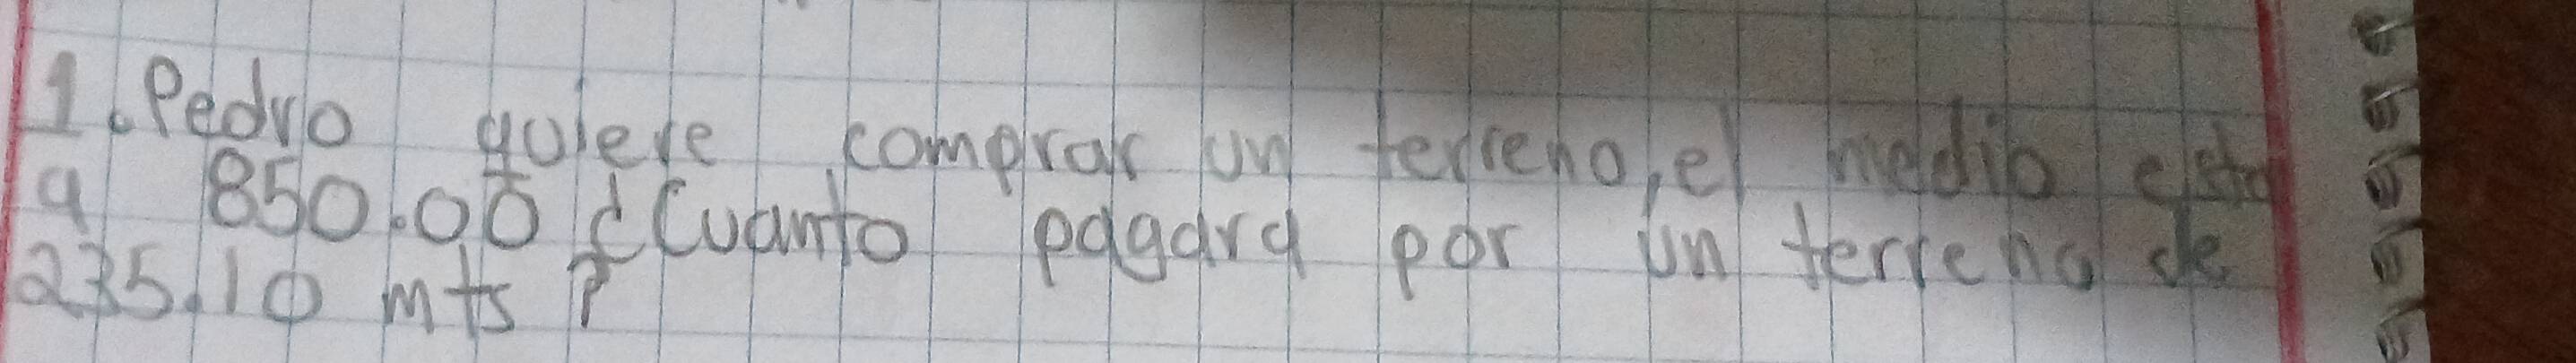 1. Pedro quiere comprar un terreno, el medio esta
a 850.00 ¿Cuanto pagara por un terreno de
235.10 mts ?